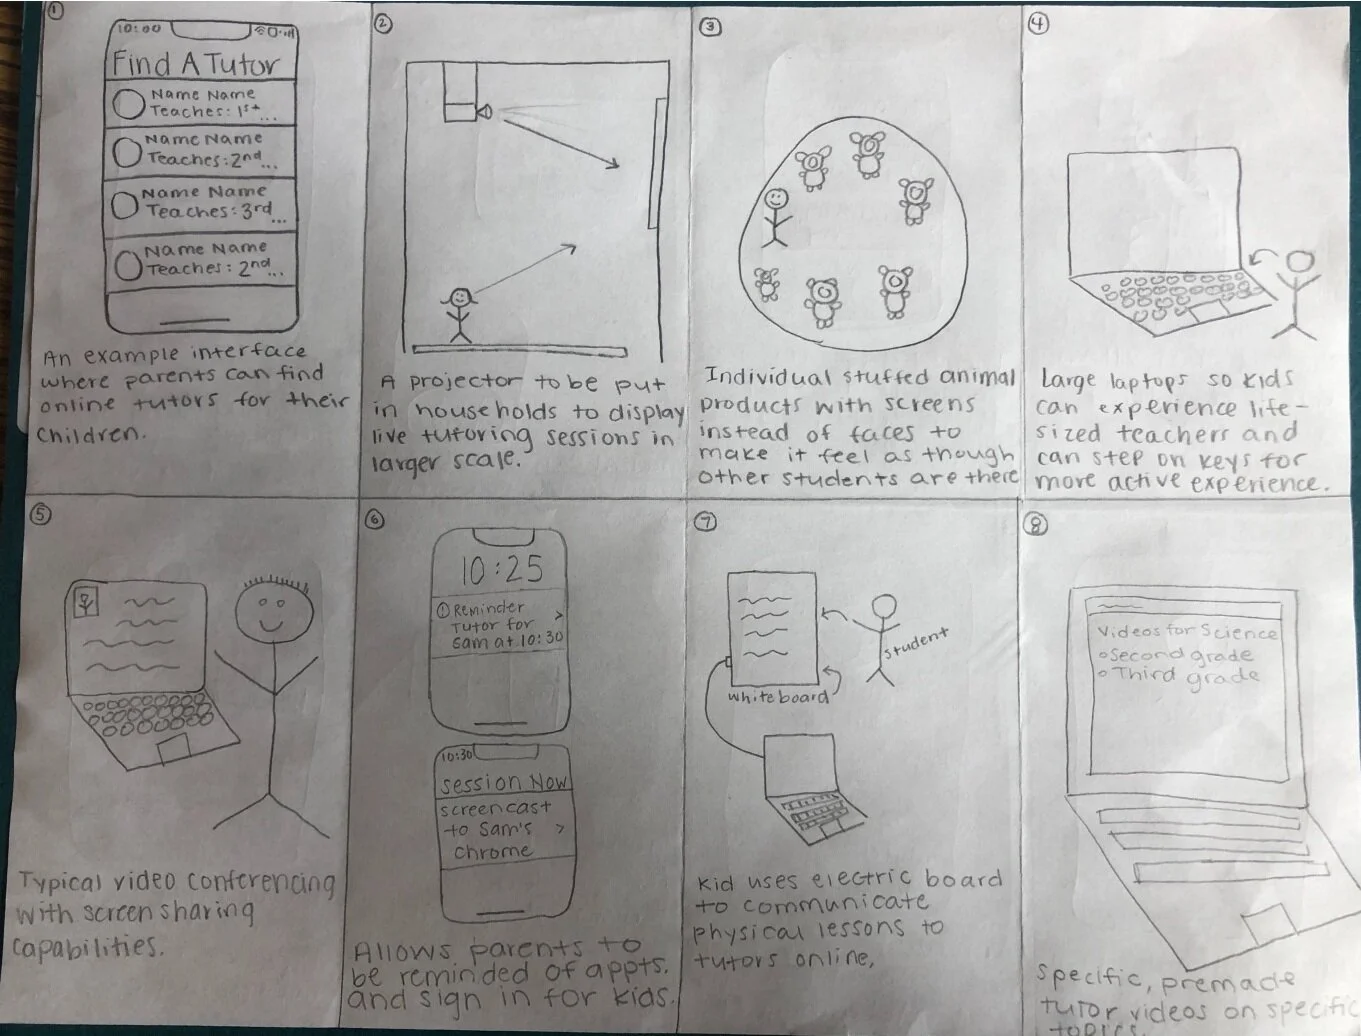 ①
10:00
Find A Tutor
Name Name
Teaches: 1st...
Name Name
Teaches: 2nd...
Name Name
Teaches: 3rd...
Name Name
Teaches: 2nd...
An example interface
where parents can find
online tutors for their
children.
②
A projector to be put
in households to display
live tutoring sessions in
larger scale.
③
Individual stuffed animal
products with screens
instead of faces to
make it feel as though
other students are there
④
Large laptops so kids
can experience life-
sized teachers and
can step on keys for
more active experience.
⑤
Typical video conferencing
with screen sharing
capabilities.
⑥
10:25
Reminder >
Tutor for
Sam at 10:30
10:30
Session Now
screencast
to Sam's >
Chrome
Allows parents to
be reminded of appts.
and sign in for kids.
⑦
student
whiteboard
Kid uses electric board
to communicate
physical lessons to
tutors online,
⑧
Videos for Science
Second grade
Third grade
Specific, premade
tutor videos on specific
topics.